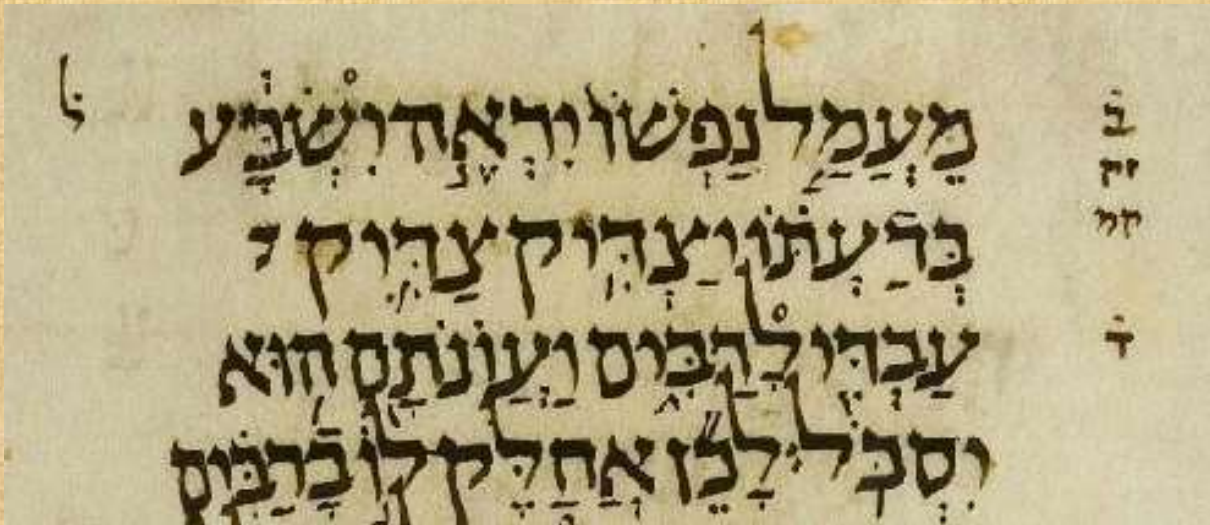 ל̇
מֵעֲמַ֤ל נַפְשׁוֹ֙ יִרְאֶ֣ה יִשְׂבָּ֔ע
ב̇
בְּדַעְתּ֗וֹ יַצְדִּ֥יק צַדִּ֛יק
עַבְדִּ֖י לָרַבִּ֑ים וַעֲוֺנֹתָ֖ם ה֥וּא
ד̇
יִסְבֹּֽל׃ לָכֵ֞ן אֲחַלֶּק־ל֣וֹ בָרַבִּ֗ים